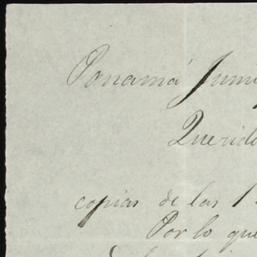 Panamá Juni
Querido
copias de las 1
Por lo que